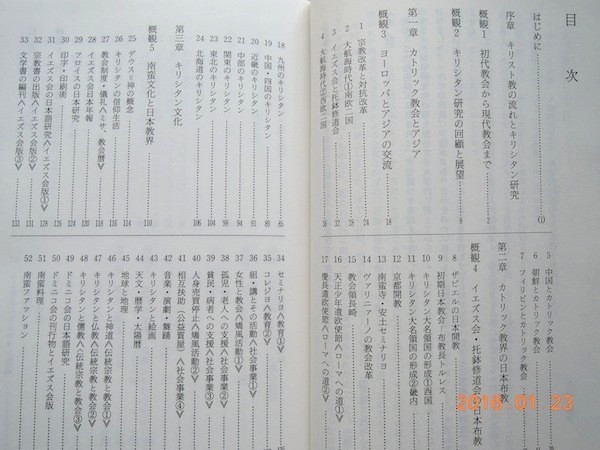 目次
はじめに
序章 キリスト教の流れとキリシタン研究 (1)
概観1 初代教会から現代教会まで 2
概観2 キリシタン研究の回顧と展望 8
第一章 カトリック教会とアジア
概観3 ヨーロッパとアジアの交流 18
1 宗教改革と対抗改革 24
2 大航海時代①南欧二国 28
3 イエズス会と托鉢修道会 32
4 大航海時代②西欧二国 36
5 中国とカトリック教会
6 朝鮮とカトリック教会
7 フィリピンとカトリック教会
第二章 カトリック教界の日本布教
概観4 イエズス会・托鉢修道会の日本布教
8 ザビエルの日本開教
9 初期日本教会 布教長トルレス
10 キリシタン大名領国の形成①西国
11 キリシタン大名領国の形成②畿内
12 京都開教
13 南蛮寺・安土セミナリヨ
14 ヴァリニアーノの教会改革
15 教会領長崎
16 天正少年遣欧使節〈ローマへの道①〉
17 慶長遣欧使節〈ローマへの道②〉
18 九州のキリシタン 85
19 中国・四国のキリシタン 89
20 近畿のキリシタン 91
21 中部のキリシタン 94
22 関東のキリシタン 98
23 東北のキリシタン 104
24 北海道のキリシタン 106
第三章 キリシタン文化
概観5 南蛮文化と日本教界 110
25 デウスと神の概念 114
26 キリシタンの信仰生活 116
27 教会制度・儀礼〈ミサ、教会暦〉 118
28 イエズス会日本年報
29 フロイスの日本研究
30 印字・印刷術
31 イエズス会の日本語研究〈イエズス会版①〉 128
32 宗教書の出版〈イエズス会版②〉 131
33 文学書の編刊〈イエズス会版③〉 133
34 セミナリヨ〈教育①〉
35 コレジヨ〈教育②〉
36 組・講とその活動〈社会事業①〉
37 女性と教会〈矯風活動①〉
38 孤児・老人への支援〈社会事業②〉
39 貧民・病者への支援〈社会事業③〉
40 人身売買停止〈矯風活動②〉
41 相互扶助(公益質屋)〈社会事業④〉
42 音楽・演劇・舞踊
43 キリシタンと絵画
44 天文・暦学・太陽暦
45 地球と地理
46 キリシタンと神道〈伝統宗教と教会①〉
47 キリシタンと仏教〈伝統宗教と教会②〉
48 キリシタンと儒教〈伝統宗教と教会③〉
49 ドミニコ会の日本語研究
50 ドミニコ会の刊行物とイエズス会版
51 南蛮料理
52 南蛮ファッション
2016 01 23